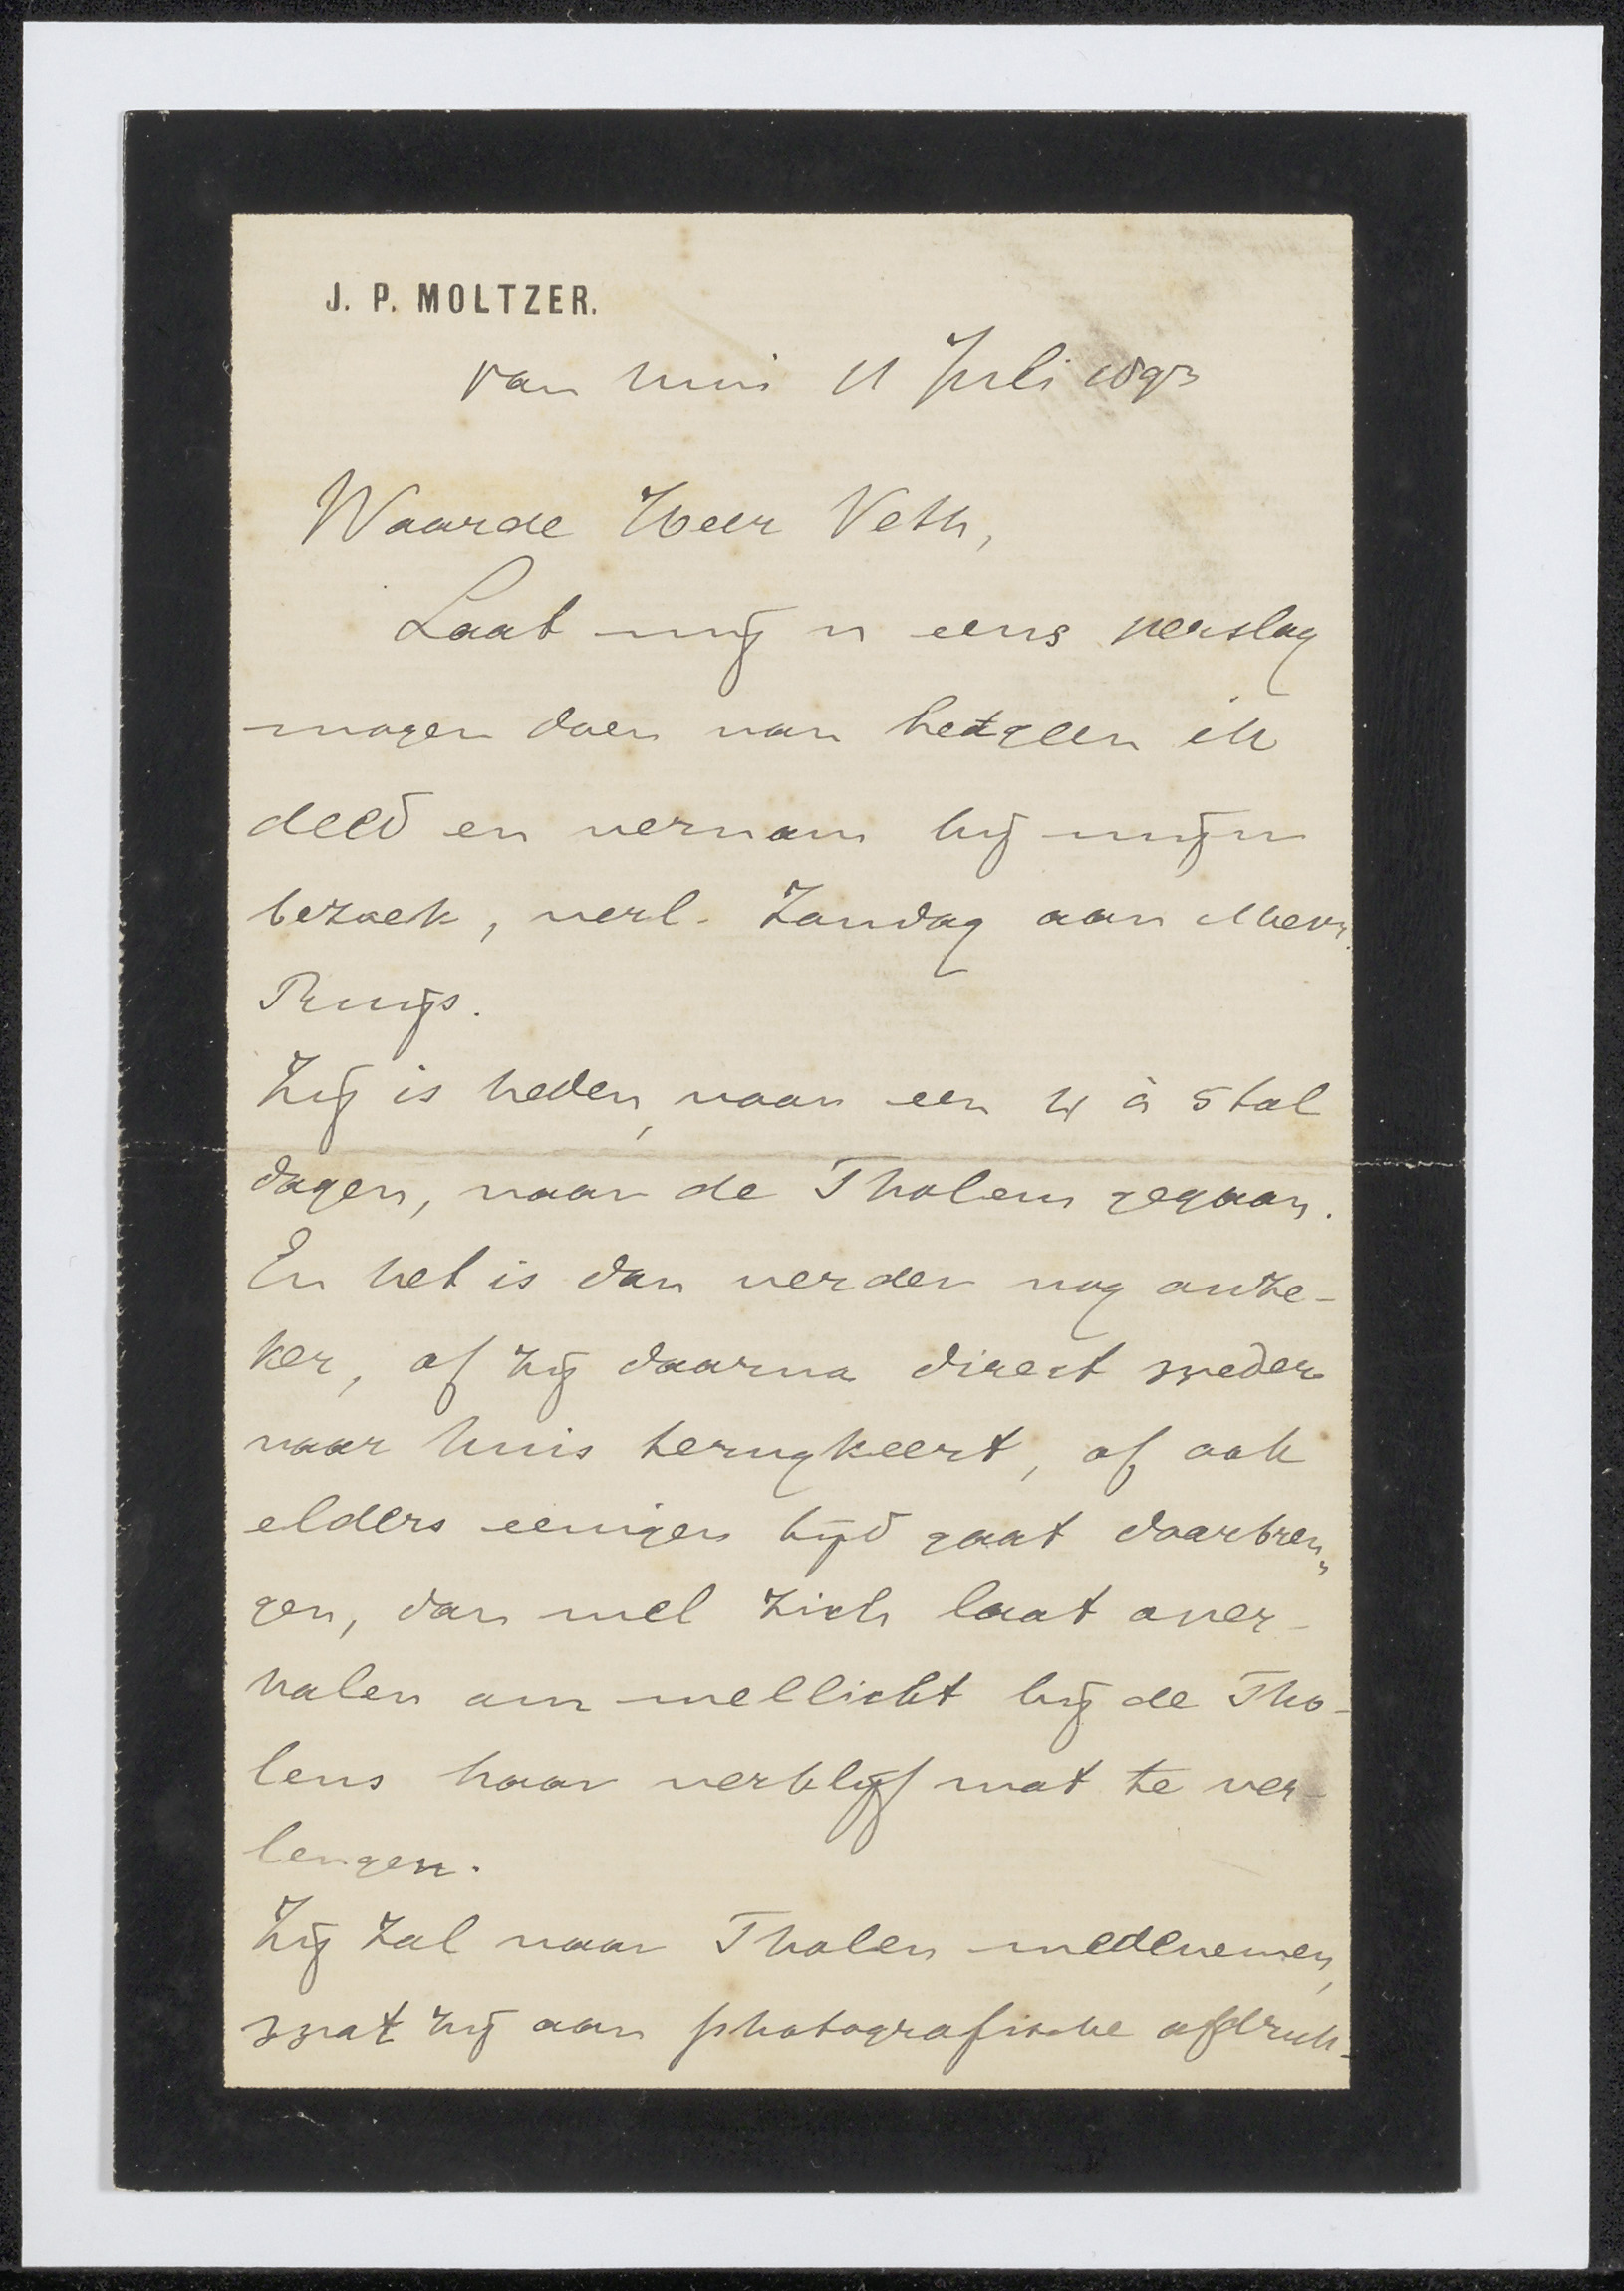 J. P. MOLTZER.
van huis 11 Juli 1893
Waarde Heer Veth,
Laat mij u eens verslag
mogen doen van hetgeen ik
deed en vernam bij mijn
bezoek, verl. Zondag aan Mevr.
Ruijs.
Zij is heden, voor een 4 à 5 tal
dagen, naar de Tholens gegaan.
En het is dan verder nog onze-
ker, of zij daarna direct weder
naar huis terugkeert, of ook
elders eenigen tijd gaat doorbren„
gen, dan wel zich laat over-
halen om wellicht bij de Tho-
lens haar verblijf wat te ver-
lengen.
Zij zal naar Tholen medenemen,
wat zij aan photografische afdruk-